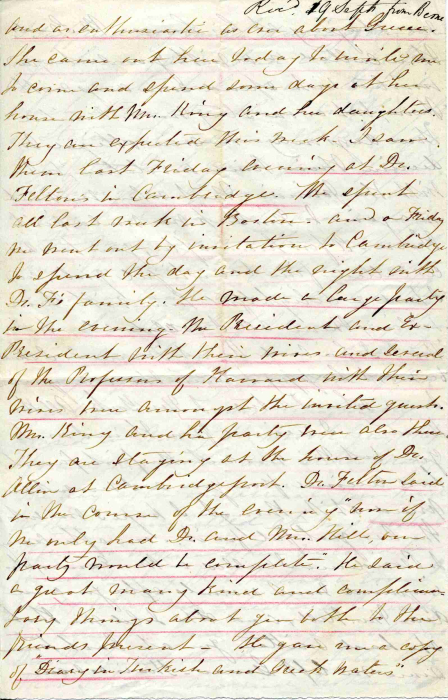 Recd. 19 Septr from Berne
and as enthusiastic as ever about Greece.
She came out here today to invite me
to come and spend some days at her
house with Mr. King and his daughters.
They are expected this week. I saw
them last Friday evening at Dr.
Felton's in Cambridge. We spent
all last week in Boston and on Friday
we went out by invitation to Cambridge
to spend the day and the night with
Dr. F's family. He made a large party
in the evening. The President and Ex-
President with their wives and several
of the Professors of Harvard with their
wives were amongst the invited guests.
Mr. King and his party were also there
They are staying at the house of Dr.
Allen at Cambridgeport. Dr. Felton said
in the course of the evening "now if
we only had Dr. and Mrs. Hill, our
party would be complete". He said
a great many kind and complimen-
tary things about you both to the
friends present – He gave me a copy
of Diary in Turkish and Greek waters"